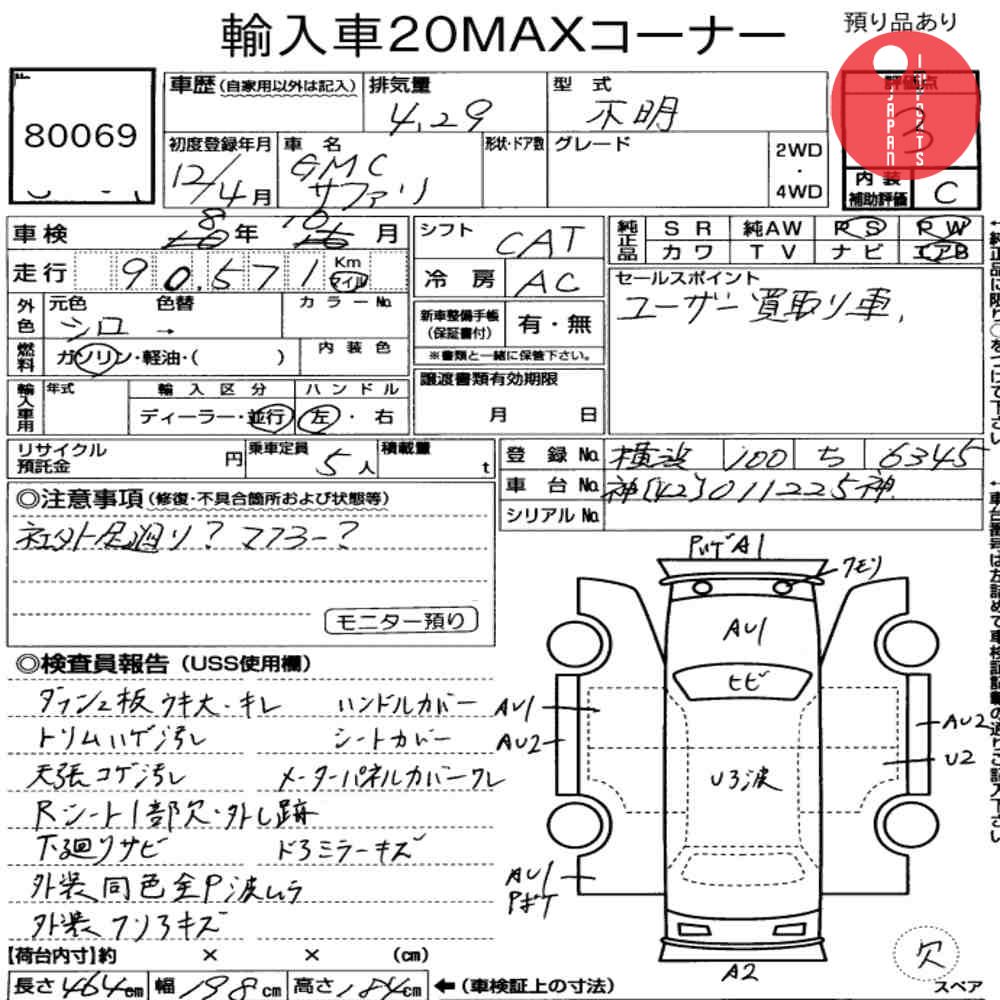 輸入車20MAXコーナー
預り品あり
80069
車歴(自家用以外は記入)
排気量
4.29
型 式
不明
評価点
3
JAPAN IMPORTS
初度登録年月
12/4月
車 名
GMC
サファリ
形状・ドア数
グレード
2WD
・
4WD
内 装
補助評価
C
車検
8
年
10
月
シフト
CAT
純正品
SR 純AW PS PW
カワ TV ナビ エアB
走行
90.571
Km
マイル
冷 房
AC
セールスポイント
ユーザー買取り車,
外色
元色
シロ →
色替
カラーNo.
新車整備手帳
(保証書付)
有・無
※書類と一緒に保管下さい。
燃料
ガソリン・軽油・( )
内装色
輸入車用
年式
輸 入 区 分
ディーラー・並行
ハ ン ド ル
左・右
譲渡書類有効期限
月 日
リサイクル
預託金
円
乗車定員
5人
積載量
t
登 録 No.
横浜 100 ち 6345
車 台 No.
神[42]011225神
シリアル No.
◎注意事項(修復・不具合箇所および状態等)
社外足廻り? マフラー?
モニター預り
◎検査員報告(USS使用欄)
ダッシュ板ウキ大・キレ
ハンドルカバー
トリムハゲ汚レ
シートカバー
天張コゲ汚レ
メーターパネルカバーワレ
Rシート1部欠・外し跡
下廻りサビ
ドアミラーキズ
外装同色全P波ムラ
外装フリアキズ
PハゲA1
クモリ
AU1
ヒビ
AU1
AU2
AU2
U2
U3波
AU1
Pボケ
A2
欠
スペア
【荷台内寸】約 × × (cm)
長さ464cm
幅198cm
高さ184cm
←(車検証上の寸法)
←純正品に限り○をつけて下さい
←車台番号は左詰めで車検証記載の通りご記入下さい